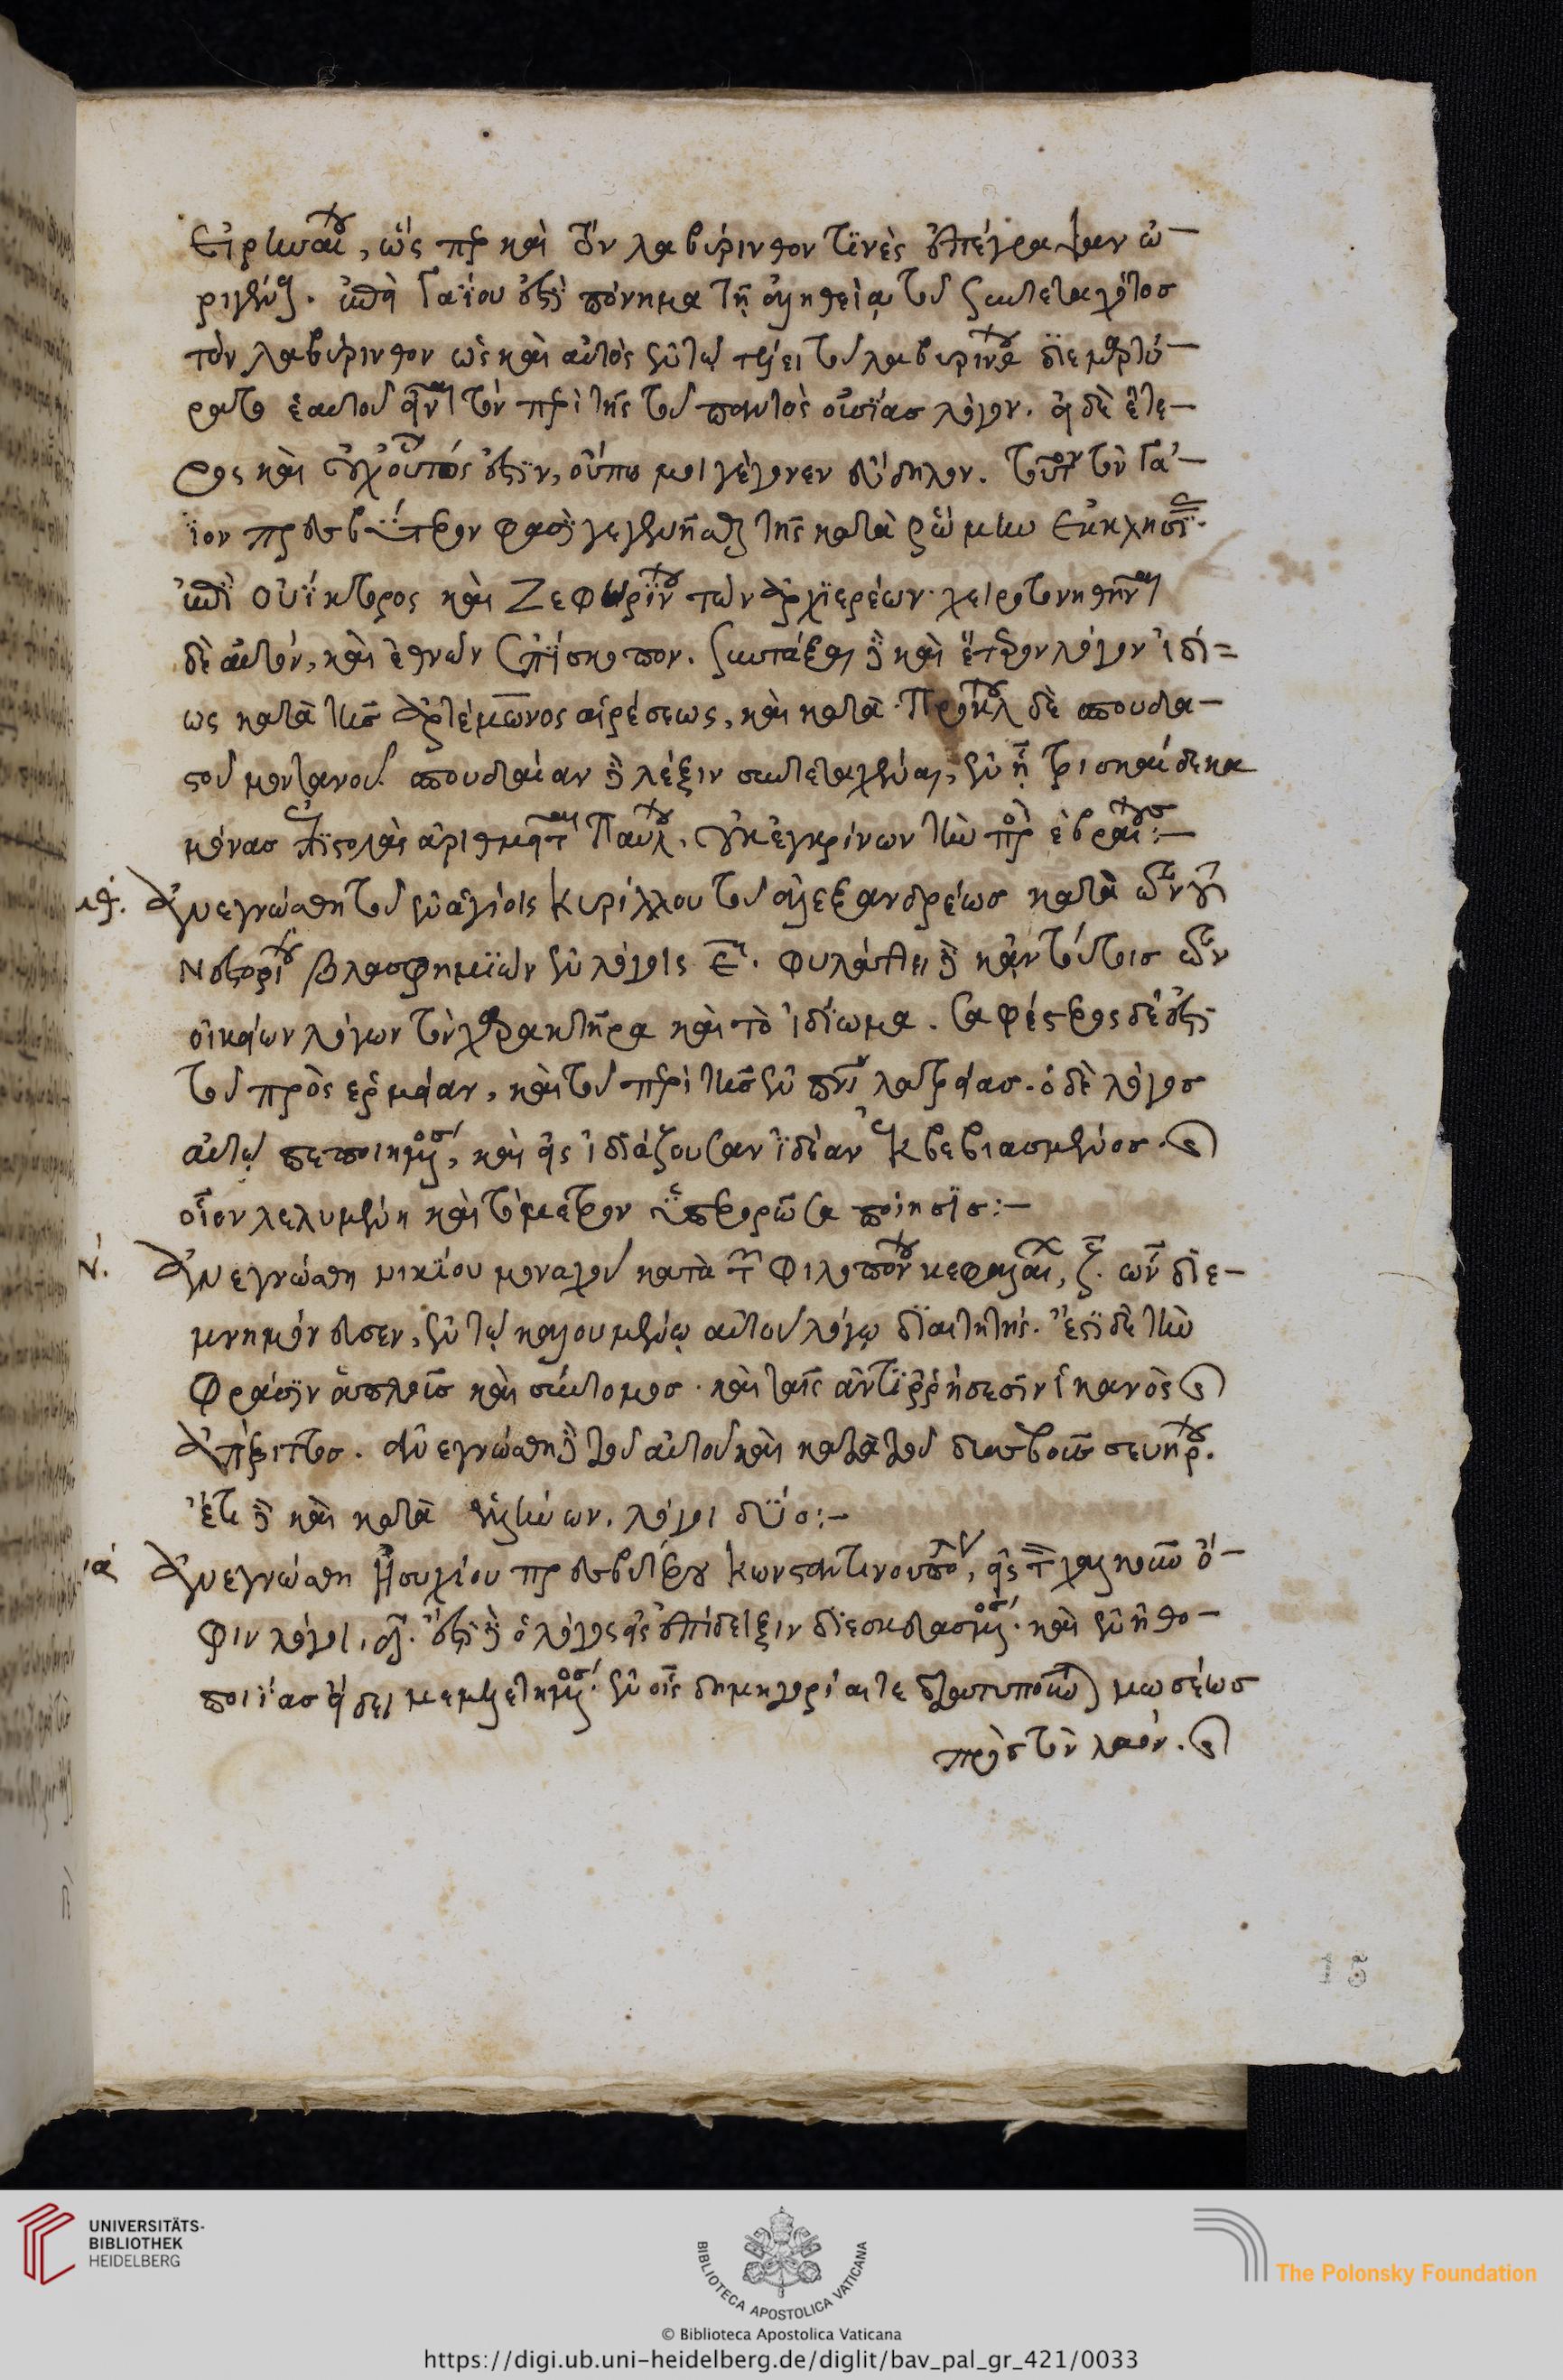 Εἰρηναίου, ὥς περ καὶ τὸν λαβύρινθον τινὲς ἐπέγραψαν ὠ-
ριγένους. ἐπεὶ Γαΐου ἐστὶ πόνημα τῇ ἀληθείᾳ τοῦ συντεταχότος
τὸν λαβύρινθον ὡς καὶ αὐτὸς ἐν τῷ τέλει τοῦ λαβυρίνθου διεμαρτύ-
ρατο ἑαυτοῦ εἶναι τὸν περὶ τῆς τοῦ παντὸς οὐσίας λόγον. εἰ δὲ ἕτε-
ρος καὶ οὐχ οὗτός ἐστιν, οὔπω μοι γέγονεν εὔδηλον. τοῦτον τὸν Γά-
ϊον πρεσβύτερον φασὶ γεγενῆσθαι τῆς κατὰ ῥώμην ἐκκλησίας.
ἐπὶ Οὐΐκτορος καὶ Ζεφυρίνου τῶν ἀρχιερέων. χειροτονηθῆναι
δὲ αὐτὸν, καὶ ἐθνῶν ἐπίσκοπον. συντάξαι δὲ καὶ ἕτερον λόγον ἰδί=
ως κατὰ τῆς ἀρτέμωνος αἱρέσεως, καὶ κατὰ Πρόκλου δὲ σπουδα-
στοῦ μοντανοῦ. σπουδαίαν δὲ λέξιν συντεταχέναι, ἐν ᾗ τρισκαίδεκα
μόνας ἐπιστολὰς ἀριθμεῖται Παύλου, οὐκ ἐγκρίνων τὴν πρὸς ἑβραίους:-
μθ. Ἀνεγνώσθη τοῦ ἐν ἁγίοις Κυρίλλου τοῦ ἀλεξανδρέως κατὰ τῶν τοῦ
Νεστορίου βλασφημιῶν ἐν λόγοις ε. φυλάττει δὲ κἀν τούτοις τῶν
οἰκείων λόγων τὸν χαρακτῆρα καὶ τὸ ἰδίωμα. σαφέστερος δέ ἐστι
τοῦ πρὸς ἑρμείαν, καὶ τοῦ περὶ τῆς ἐν πνεύματι λατρείας. ὁ δὲ λόγος
αὐτῷ πεποιημένος, καὶ εἰς ἰδιάζουσαν ἰδέαν ἐκβεβιασμένος.
οἷον λελυμένη καὶ τὸ μέτρον ὑπερορῶσα ποίησις:-
ν. Ἀνεγνώσθη νικίου μοναχοῦ κατὰ τῶν Φιλοπόνου κεφαλαίων, ζ. ὧν διε-
μνημόνευσεν, ἐν τῷ καλουμένῳ αὐτοῦ λόγῳ διαιτητής. ἔστι δὲ τὴν
φράσιν ἁπλοῦς καὶ σύντομος. καὶ ταῖς ἀντιρρήσεσιν ἱκανὸς
ἀπέριττος. ἀνεγνώσθη δὲ τοῦ αὐτοῦ καὶ κατὰ τοῦ δυσσεβοῦς σευήρου.
ἔτι δὲ καὶ κατὰ ἑλλήνων. λόγοι δύο:-
να Ἀνεγνώσθη Ἡσυχίου πρεσβυτέρου Κωνσταντινουπόλεως, εἰς τὸν χαλκοῦν ὄ-
φιν λόγοι, δ. ἔστι δὲ ὁ λόγος εἰς ἐπίδειξιν διεσκευασμένος. καὶ ἐν ἠθο-
ποιΐας εἴδει μεμελετημένος. ἐν οἷς δημηγορίαι τε διατυποῦνται μωσέως
πρὸς τὸν λαόν.
15
UNIVERSITÄTS-
BIBLIOTHEK
HEIDELBERG
BIBLIOTECA APOSTOLICA VATICANA
The Polonsky Foundation
© Biblioteca Apostolica Vaticana
https://digi.ub.uni-heidelberg.de/diglit/bav_pal_gr_421/0033